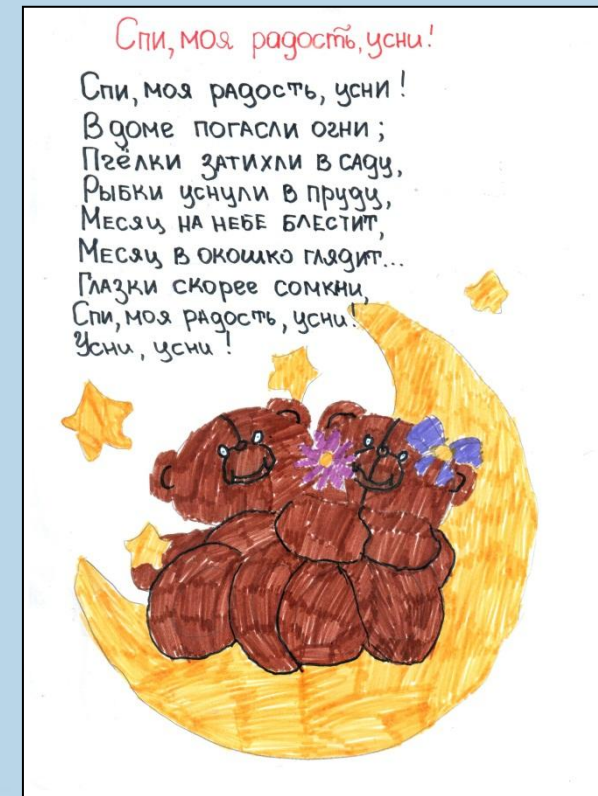 Спи, моя радость, усни!
Спи, моя радость, усни!
В доме погасли огни;
Пчёлки затихли в саду,
Рыбки уснули в пруду,
Месяц на небе блестит,
Месяц в окошко глядит...
Глазки скорее сомкни,
Спи, моя радость, усни!
Усни, усни!